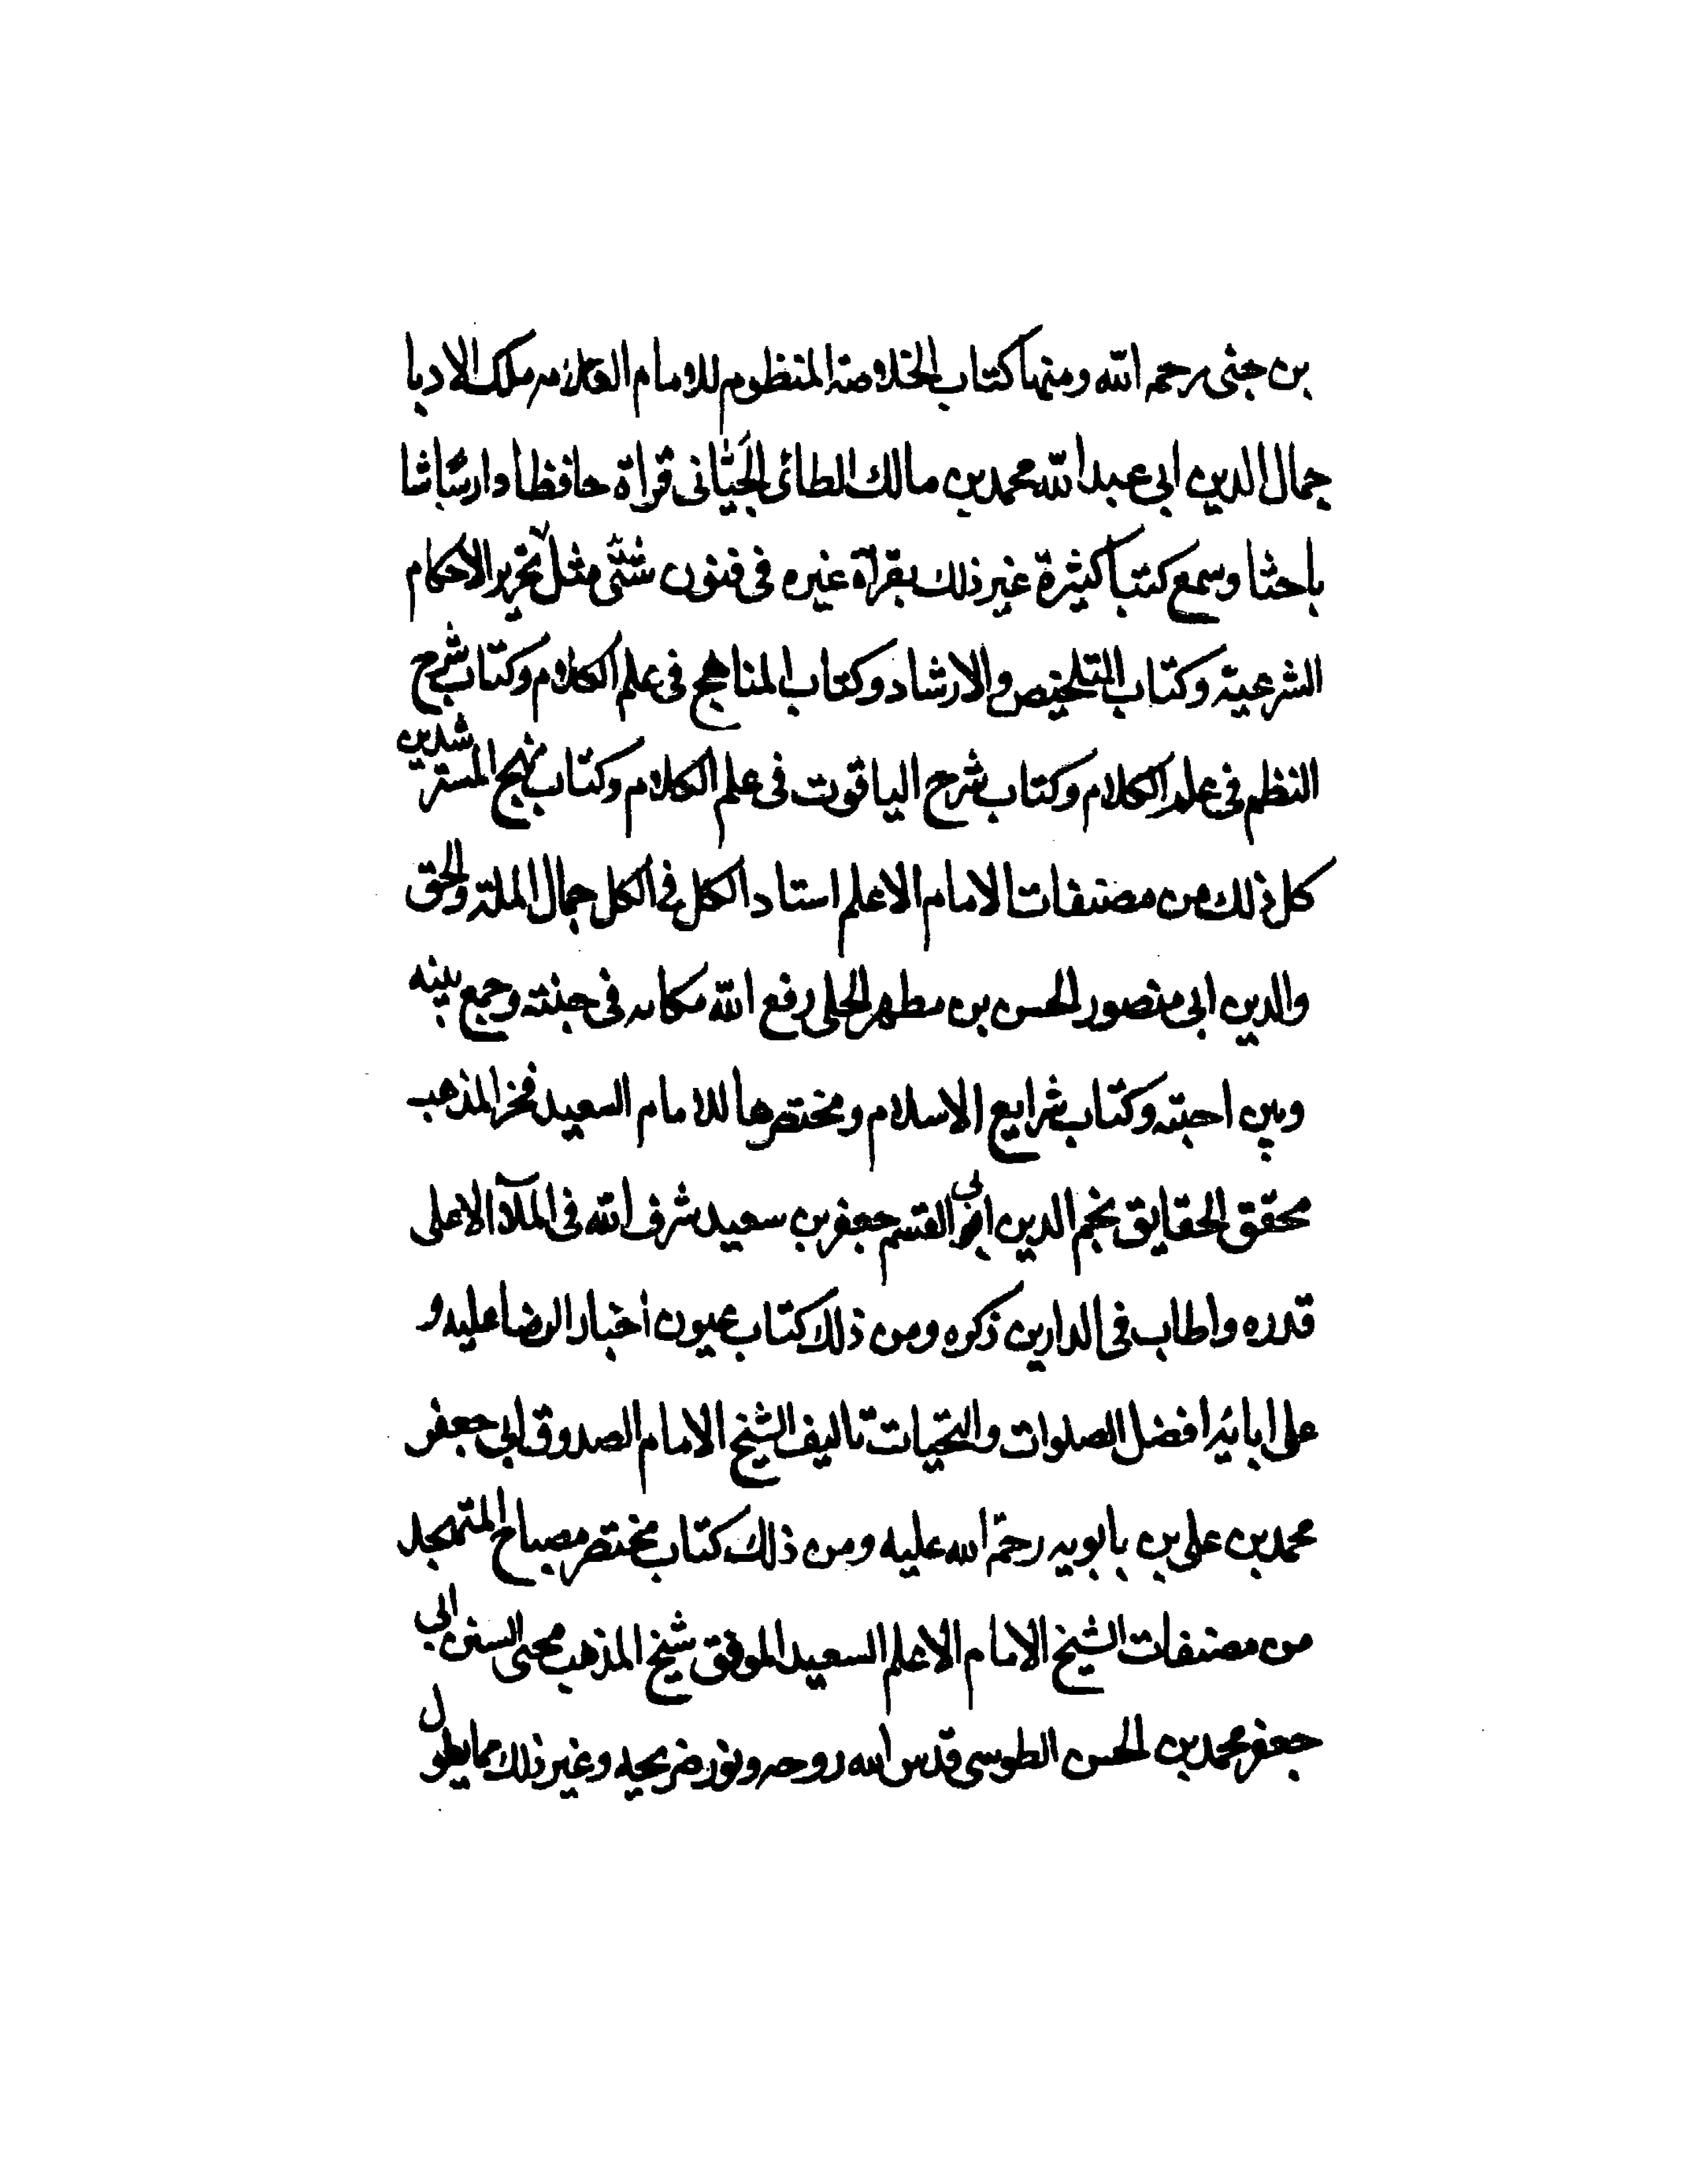 بن جنى رحمه الله ومنها كتاب الخلاصة المنظوم للامام العلامه ملك الادبا
جمال الدين ابى عبد الله محمد بن مالك الطائى الجيّانى قراة حافظا دارسا شا
باحثا وسمع كتبا كثيرة غير ذلك بقرآة غيره فى فنون شتّى مثل تحرير الاحكام
الشرعيته وكتاب التلخيص والارشاد وكتاب المناهج فى علم الكلام وكتاب شرح
النظم فى علم الكلام وكتاب شرح الياقوت فى علم الكلام وكتاب نهج المسترشدين
كل ذلك من مصنفات الامام الاعلم استاد الكل فى الكل جمال الملته والحق
والدين ابى منصور الحسن بن مطهر الحلى رفع الله مكانه فى جنته وجمع بينه
وبين احبته وكتاب شرايع الاسلام ومختصرها للامام السعيد فخر المذهب
محقق الحقايق نجم الدين ابى القسم جعفر بن سعيد شرف الله فى الملآ الاعلى
قدره واطاب فى الدارين ذكره ومن ذلك كتاب عيون اخبار الرضا عليه و
على ابائه افضل الصلوات والتحيات تاليف الشيخ الامام الصدوق ابى جعفر
محمد بن على بن بابويه رحمة الله عليه ومن ذلك كتاب مختصر مصباح المتهجد
من مصنفات الشيخ الامام الاعلم السعيد الموفق شيخ المذهب محى السنن ابى
جعفر محمد بن الحسن الطوسى قدس الله روحه ونور ضريحه وغير ذلك مما يطول